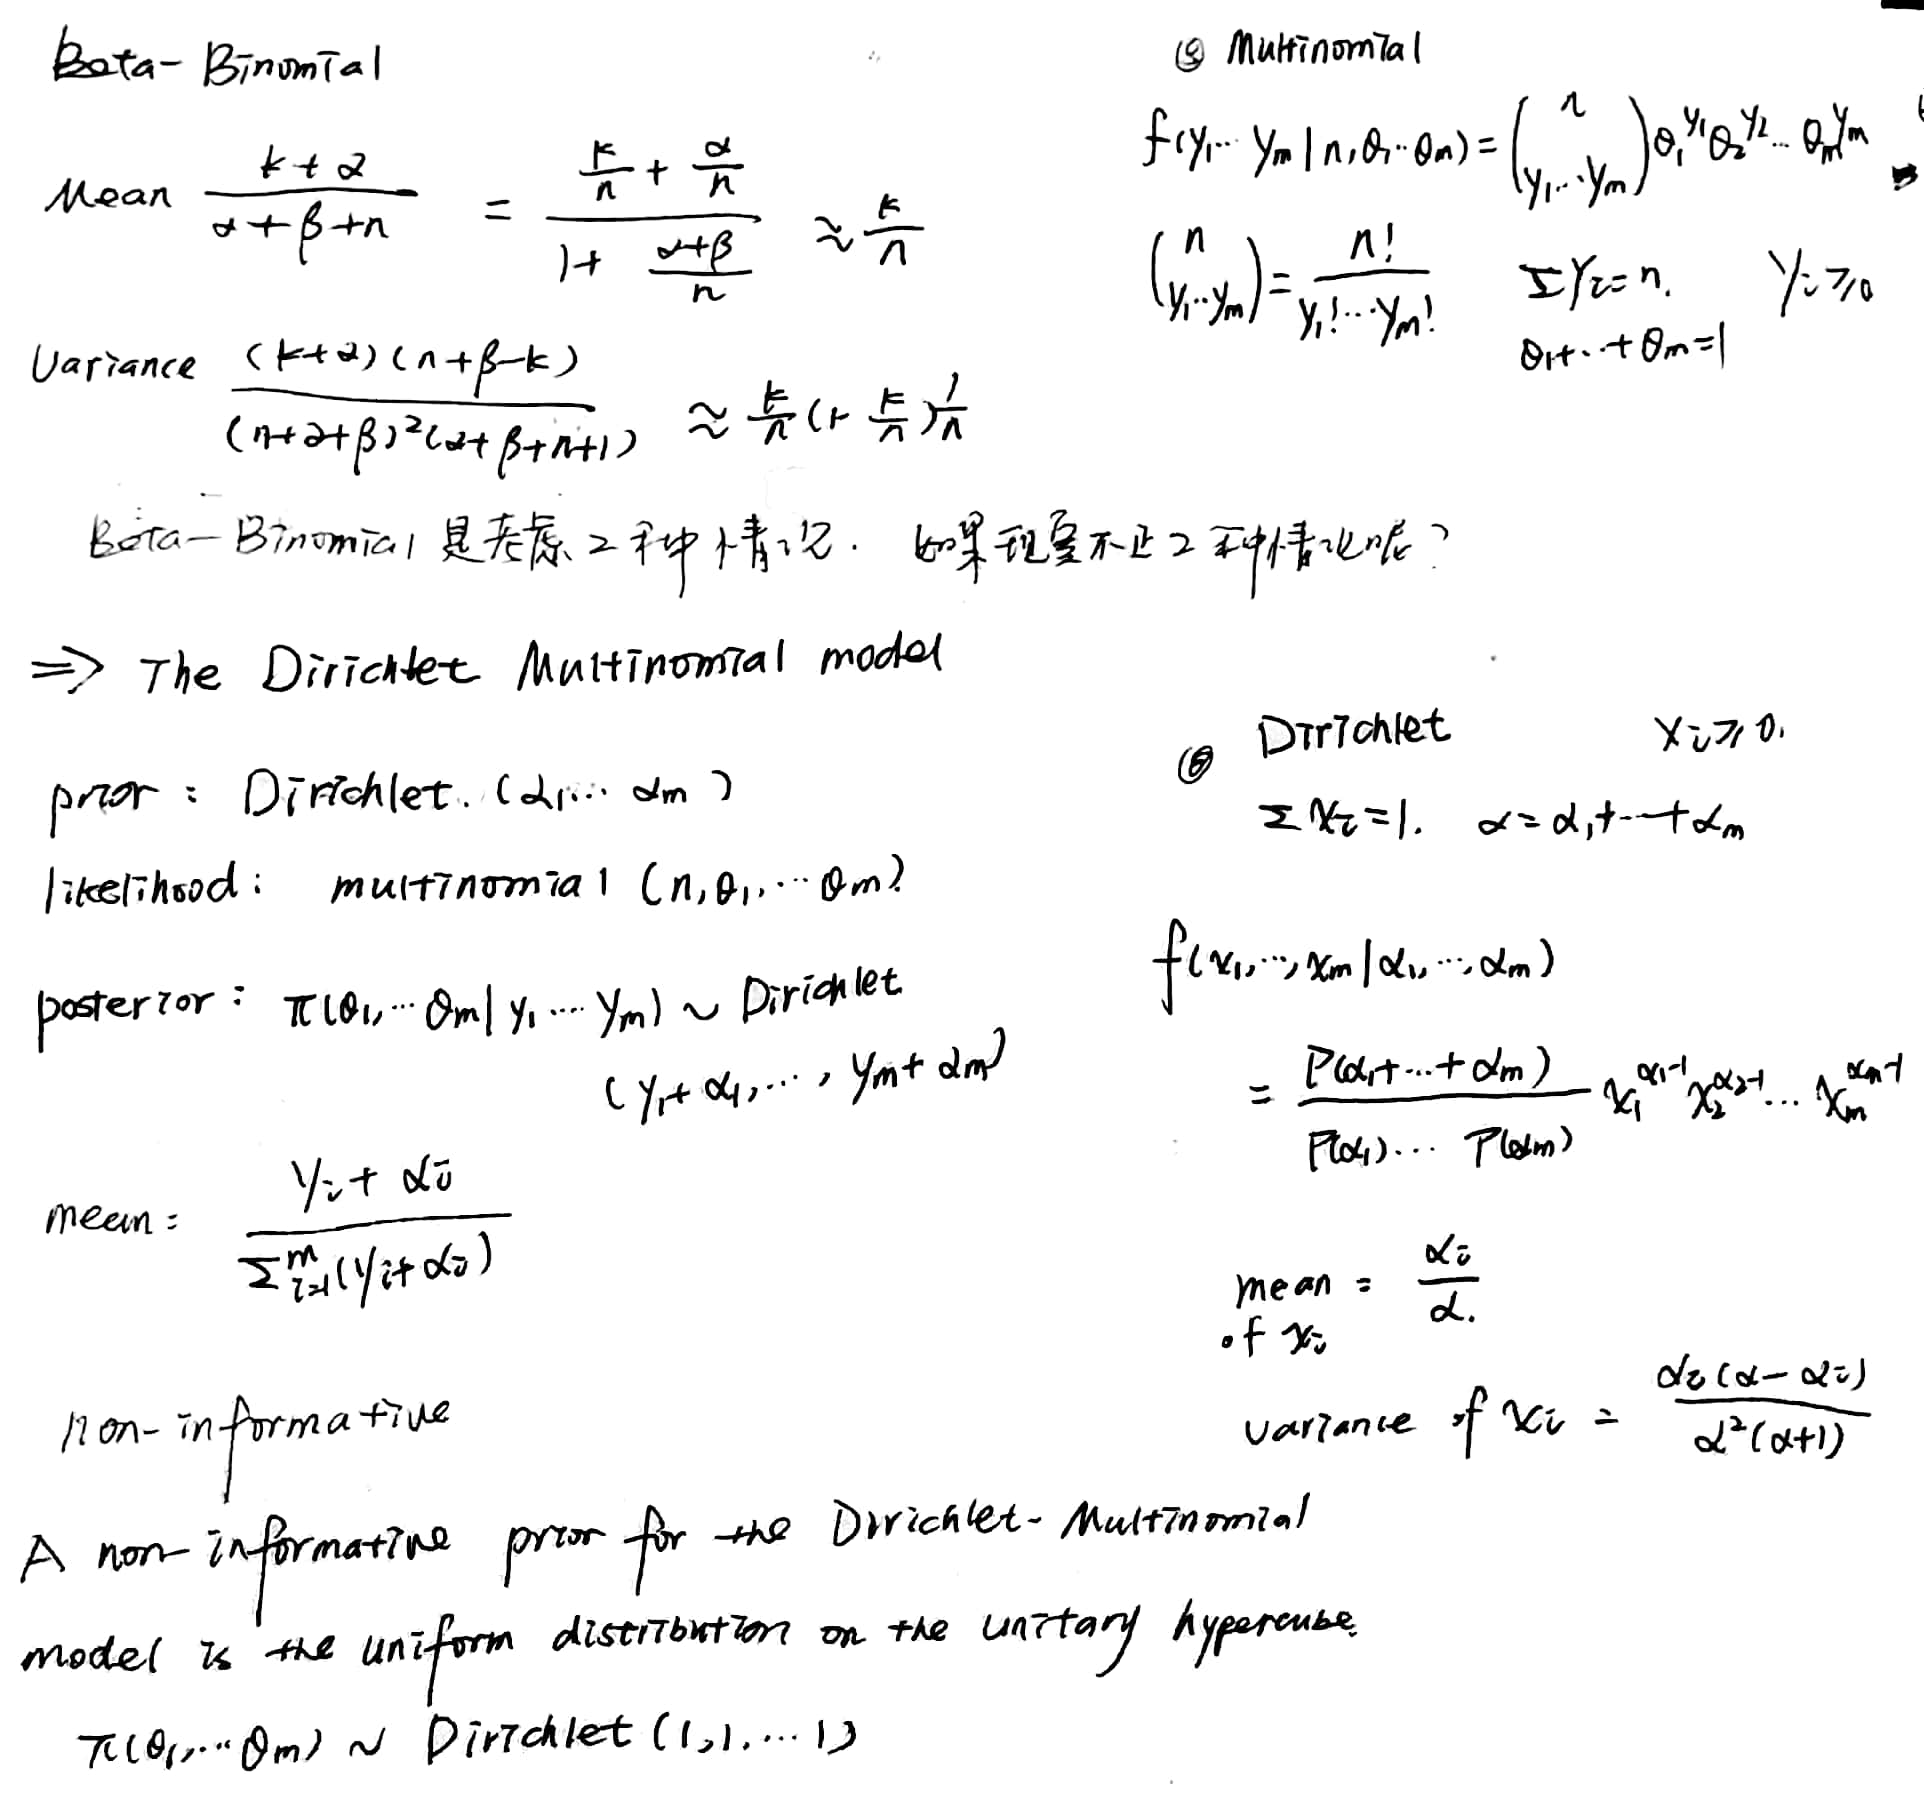 Beta-Binomial
Mean (k+α)/(α+β+n) = (k/n + α/n)/(1+ (α+β)/n) ≈ k/n
Variance (k+α)(n+β-k)/((n+α+β)²(α+β+n+1)) ≈ k/n (1- k/n) 1/n
Beta-Binomial 是考虑2种情况. 如果现实不止2种情况呢?
⇒ The Dirichlet Multinomial model
prior: Dirichlet. (α1,... αm)
likelihood: multinomial (n,θ1,...θm)
posterior: π(θ1,...θm|y1....ym) ~ Dirichlet
(y1+α1,..., ym+αm)
mean= (yi+αi)/(Σᵐᵢ₌₁(yi+αi))
non-informative
A non-informative prior for the Dirichlet-Multinomial
model is the uniform distribution on the unitary hypercube.
π(θ1,...θm) ~ Dirichlet (1,1,...1)
Multinomial
f(y1...ym|n,θ1...θm) = (n y1...ym) θ1^y1 θ2^y2...θm^ym
(n y1...ym) = n!/(y1!...ym!) ΣYi=n. Yi≥0
θ1+...+θm=1
Dirichlet Xi≥0.
Σxi=1. α=α1+...+αm
f(x1,...,xm|α1,...,αm)
= Γ(α1+...+αm)/(Γ(α1)...Γ(αm)) x1^(α1-1) x2^(α2-1)... xm^(αm-1)
mean = αi/α.
of xi
variance of xi = αi(α-αi)/(α²(α+1))